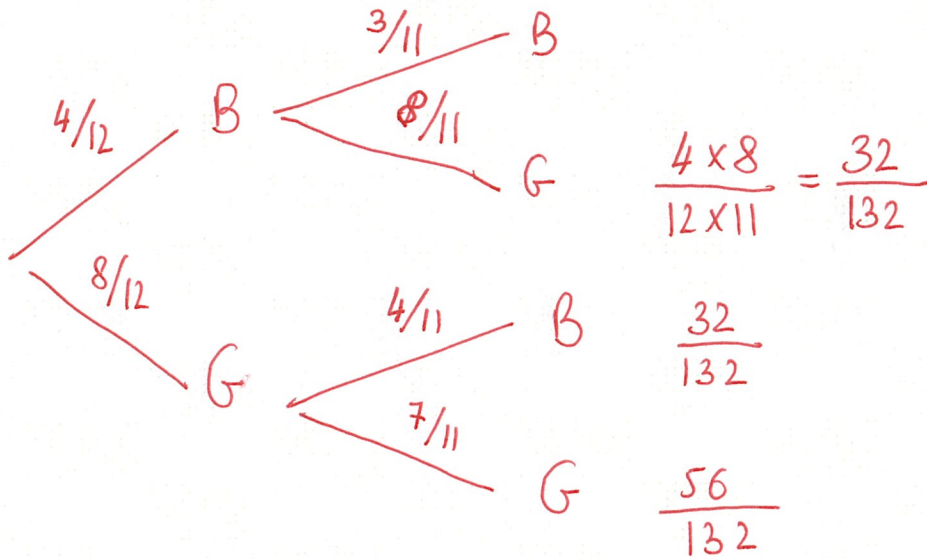 3/11 B
4/12 B 8/11
G 4 x 8 / 12 x 11 = 32 / 132
8/12 4/11 B 32 / 132
G 7/11
G 56 / 132